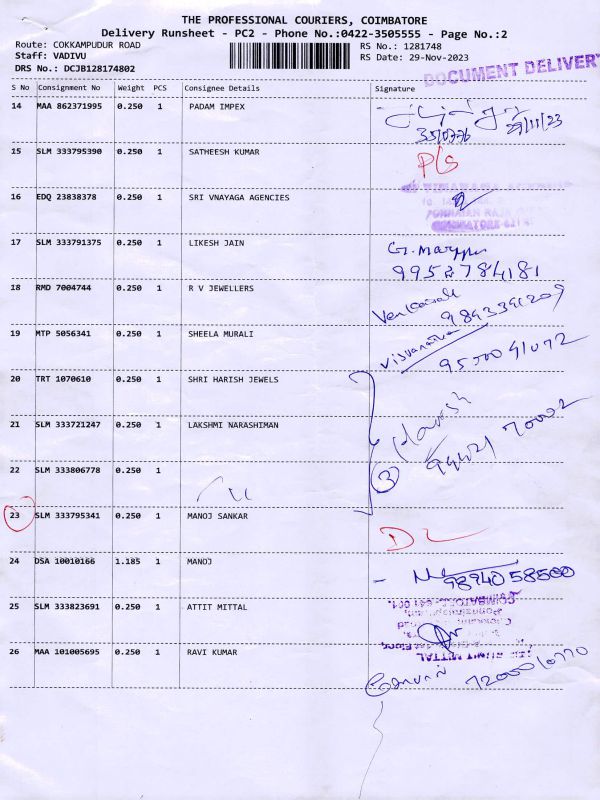 THE PROFESSIONAL COURIERS, COIMBATORE
Delivery Runsheet - PC2 - Phone No.:0422-3505555 - Page No.:2
Route: COKKAMPUDUR ROAD RS No.: 1281748
Staff: VADIVU RS Date: 29-Nov-2023
DRS No.: DCJB128174802
DOCUMENT DELIVERY
S No Consignment No Weight PCS Consignee Details Signature
14 MAA 862371995 0.250 1 PADAM IMPEX
29/11/23
15 SLM 333795390 0.250 1 SATHEESH KUMAR
16 EDQ 23838378 0.250 1 SRI VNAYAGA AGENCIES
17 SLM 333791375 0.250 1 LIKESH JAIN
9952784181
18 RMD 7004744 0.250 1 R V JEWELLERS
19 MTP 5056341 0.250 1 SHEELA MURALI
20 TRT 1070610 0.250 1 SHRI HARISH JEWELS
21 SLM 333721247 0.250 1 LAKSHMI NARASHIMAN
22 SLM 333806778 0.250 1
3
23 SLM 333795341 0.250 1 MANOJ SANKAR
24 DSA 10010166 1.185 1 MANOJ
9894058500
25 SLM 333823691 0.250 1 ATTIT MITTAL
26 MAA 101005695 0.250 1 RAVI KUMAR